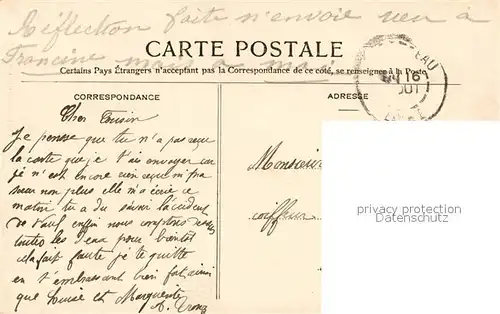 Réflection faite n'envoie rien à
Francine mais a moi
CARTE POSTALE
Certains Pays Étrangers n'acceptant pas la Correspondance de ce côté, se renseigner à la Poste
CORRESPONDANCE
ADRESSE
EAU
16
OUT
Cher Cousin
Je pense que tu n'a pas reçu
la carte que je t'ai envoyer car
je n'est encore rien reçu m'
sœur non plus elle m'a écrie ce
matin tu a du savoir l'accident
de Paul enfin nous comptons
toutes les deux pour bientot
cela fait faute je te quitte
en t'embrassant bien fort ainsi
que Louise et Marguerite
Monsieur
coiffeur
privacy protection